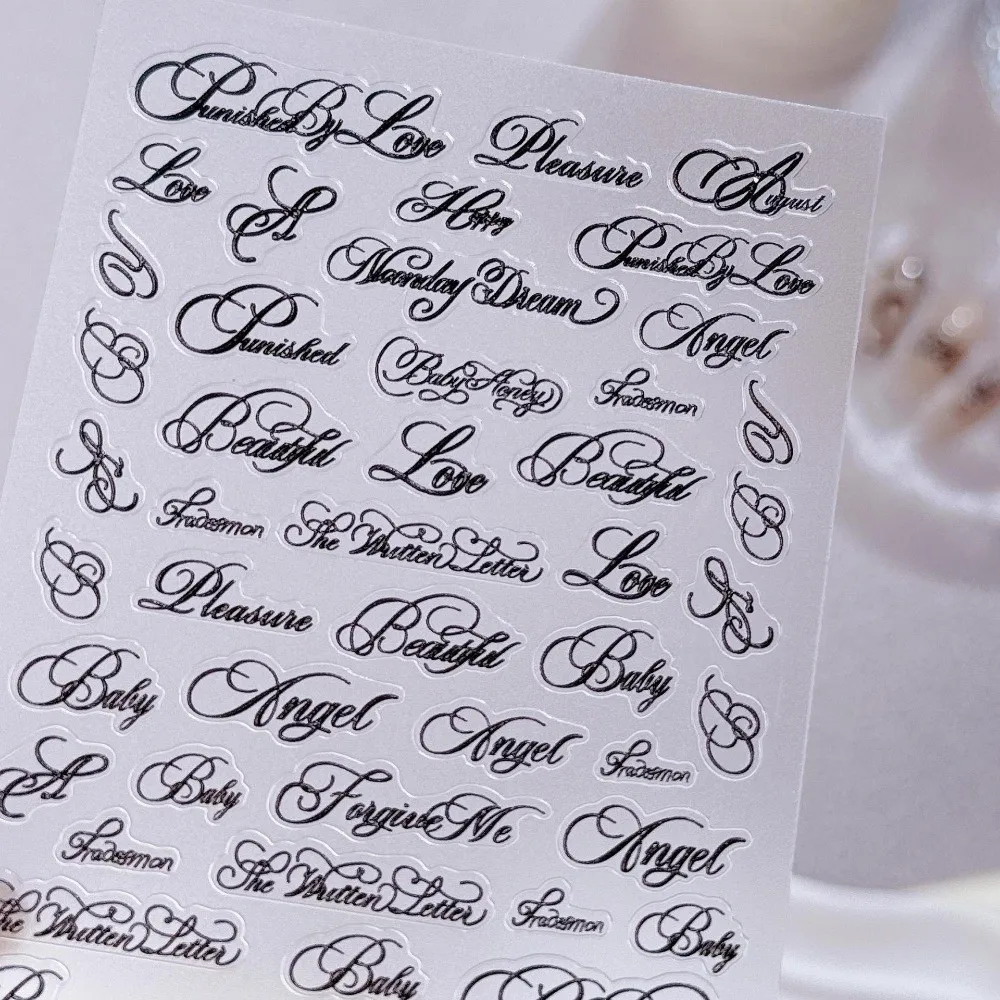 Punished By Love Pleasure August
Love A Happy Punished By Love
Y Noonday Dream Angel
B Punished Baby Honey Tradesman
Beautiful Love Beautiful Y
Tradesman The Written Letter Love B
B Pleasure Beautiful Baby
Baby Angel Angel Tradesman B
A Baby Forgive Me Angel
Tradesman The Written Letter Tradesman Baby
The Written Letter Baby